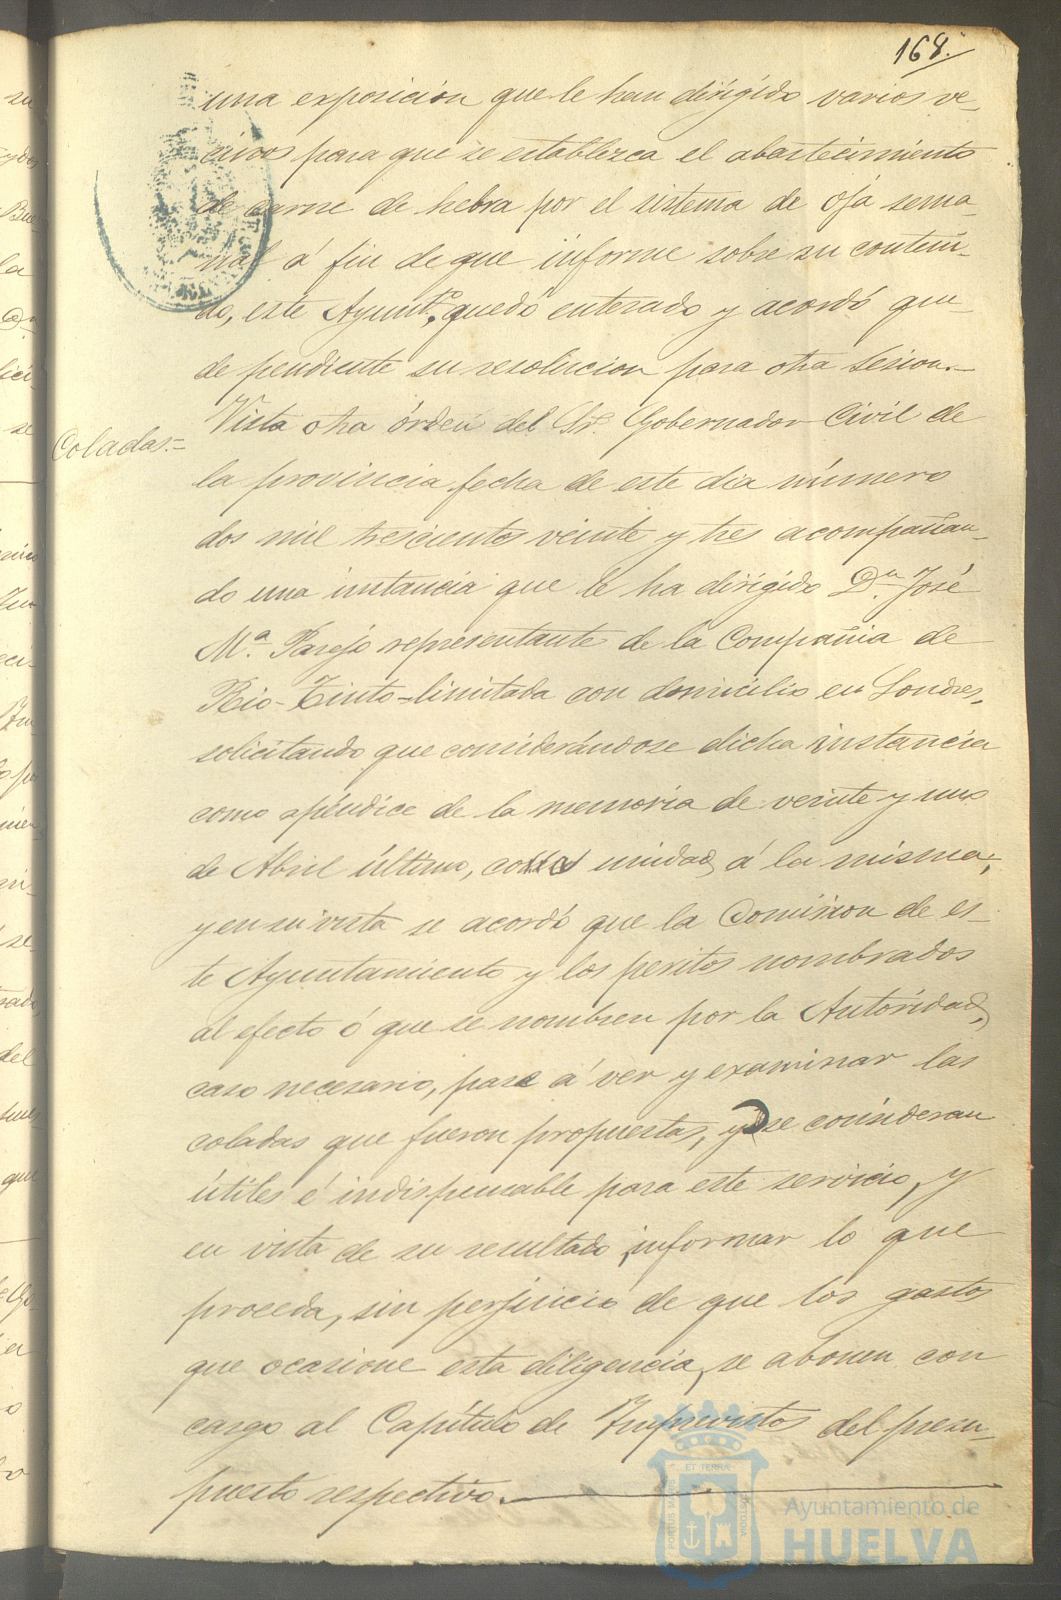 168.
una exposicion que le han dirigido varios ve-
cinos para que se establezca el abastecimiento
de carne de hebra por el sistema de oja sema-
nal á fin de que informe sobre su conteni-
do, este Ayunt.º quedó enterado y acordó que-
de pendiente su resolucion para otra sesion.-
Coladas.=
Vista otra órden del Sr. Gobernador Civil de
la provincia fecha de este dia número
dos mil trescientos veinte y tres acompañan-
do una instancia que le ha dirigido D.n José
M.a Parejo representante de la Compañia de
Rio-Tinto-limitada con domicilio en Londres,
solicitando que considerándose dicha instancia
como apéndice de la memoria de veinte y uno
de Abril último, unida á la misma;
y en su vista se acordó que la Comision de es-
te Ayuntamiento y los peritos nombrados
al efecto ó que se nombren por la Autoridad,
caso necesario, pase á ver y examinar las
coladas que fueron propuestas, y se consideran
útiles é indispensable para este servicio, y
en vista de su resultado, informar lo que
proceda, sin perjuicio de que los gastos
que ocasione esta diligencia, se abonen con
cargo al Capítulo de Imprevistos del presu-
puesto respectivo.
PORTUS MARIS ET TERRÆ CUSTODIA
Ayuntamiento de
HUELVA